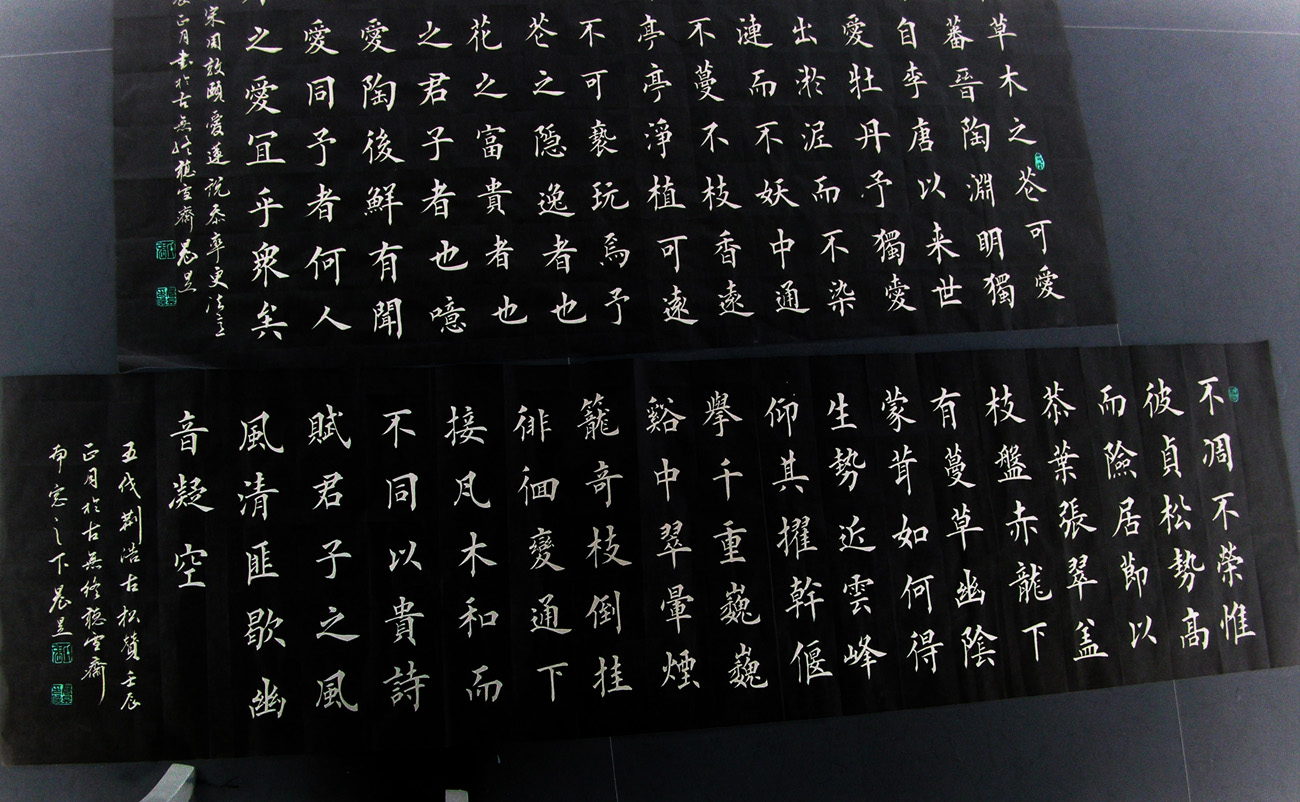 草木之芲可愛
蕃晉陶淵明獨
自李唐以来世
愛牡丹予獨愛
出淤泥而不染
漣而不妖中通
不蔓不枝香遠
亭亭淨植可遠
不可褻玩焉予
芲之隱逸者也
花之富貴者也
之君子者也噫
愛陶後鮮有聞
愛同予者何人
之愛冝乎衆矣
宋周敦頤愛蓮説
正月書於古無終聴雪齋
不凋不荣惟
彼貞松勢高
而險居節以
恭葉張翠盖
枝盤赤龍下
有蔓草幽陰
蒙茸如何得
生勢近雲峰
仰其擢幹偃
舉千重巍巍
谿中翠暈煙
籠奇枝倒挂
徘徊變通下
接凡木和而
不同以貴詩
賦君子之風
風清匪歇幽
音凝空
五代荊浩古松贊壬辰
正月於古無終聴雪齋
南窓之下